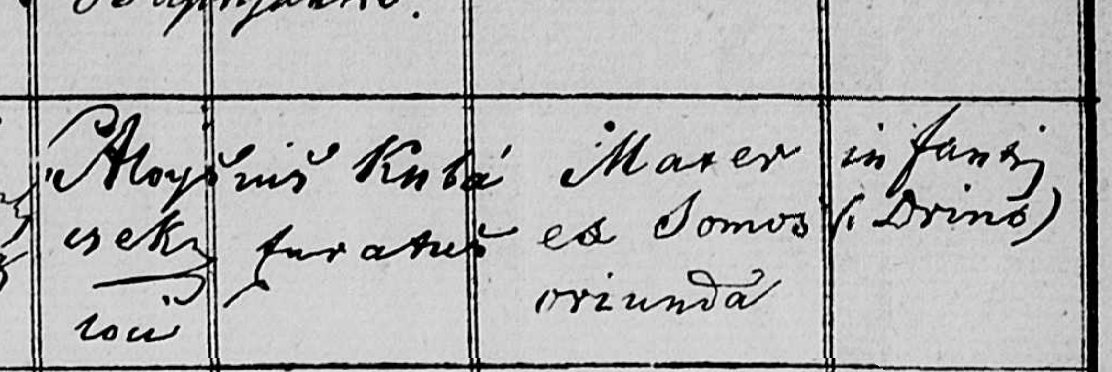 Aloysius Kubá Mater infantis
csek curatus ex Somos (: Drinó)
loci oriunda